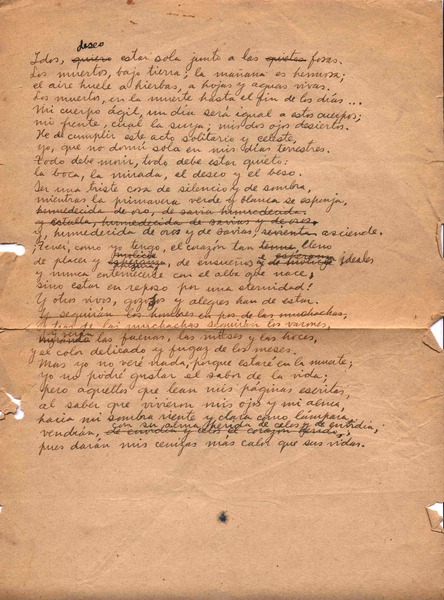 deseo
Idos, quiero estar sola junto a las quietas fosas.
Los muertos, bajo tierra; la mañana es hermosa;
el aire huele a hierbas, a hojas y aguas vivas.
Los muertos, en la muerte hasta el fin de los días...
Mi cuerpo ágil, un día será igual a estos cuerpos;
mi frente, cual la suya; mis dos ojos desiertos.
He de cumplir este acto solitario y celeste,
yo, que no dormí sola en mis días terrestres.
Todo debe morir, todo debe estar quieto:
la boca, la mirada, el deseo y el beso.
Ser una triste cosa de silencio y de sombra,
mientras la primavera verde y blanca se esponja,
humedecida de oro, de savia humedecida.
y estalla, humedecida de savias y de oros.
y, humedecida de oros y de savias, asciende.
Tener, como yo tengo, el corazón tan lleno
de placer y de ensueños ideales
y nunca enternecerse con el alba que nace,
sino estar en reposo por una eternidad!
Y otros vivos, gozosos y alegres han de estar.
Y seguirán los hombres en pos de las muchachas,
y tras de las muchachas seguirán los varones,
las faenas, las mieses y las hoces,
y el color delicado y fugaz de los meses.
Mas yo no veré nada, porque estaré en la muerte;
yo no podré gustar el sabor de la vida;
pero aquellos que lean mis páginas escritas,
al saber que vivieron mis ojos y mi alma,
hacia mi sombra riente y clara como lámpara,
con su alma herida de celos y de envidia,
vendrán, de envidia y celos el corazón herido,
pues darán mis cenizas más calor que sus vidas.